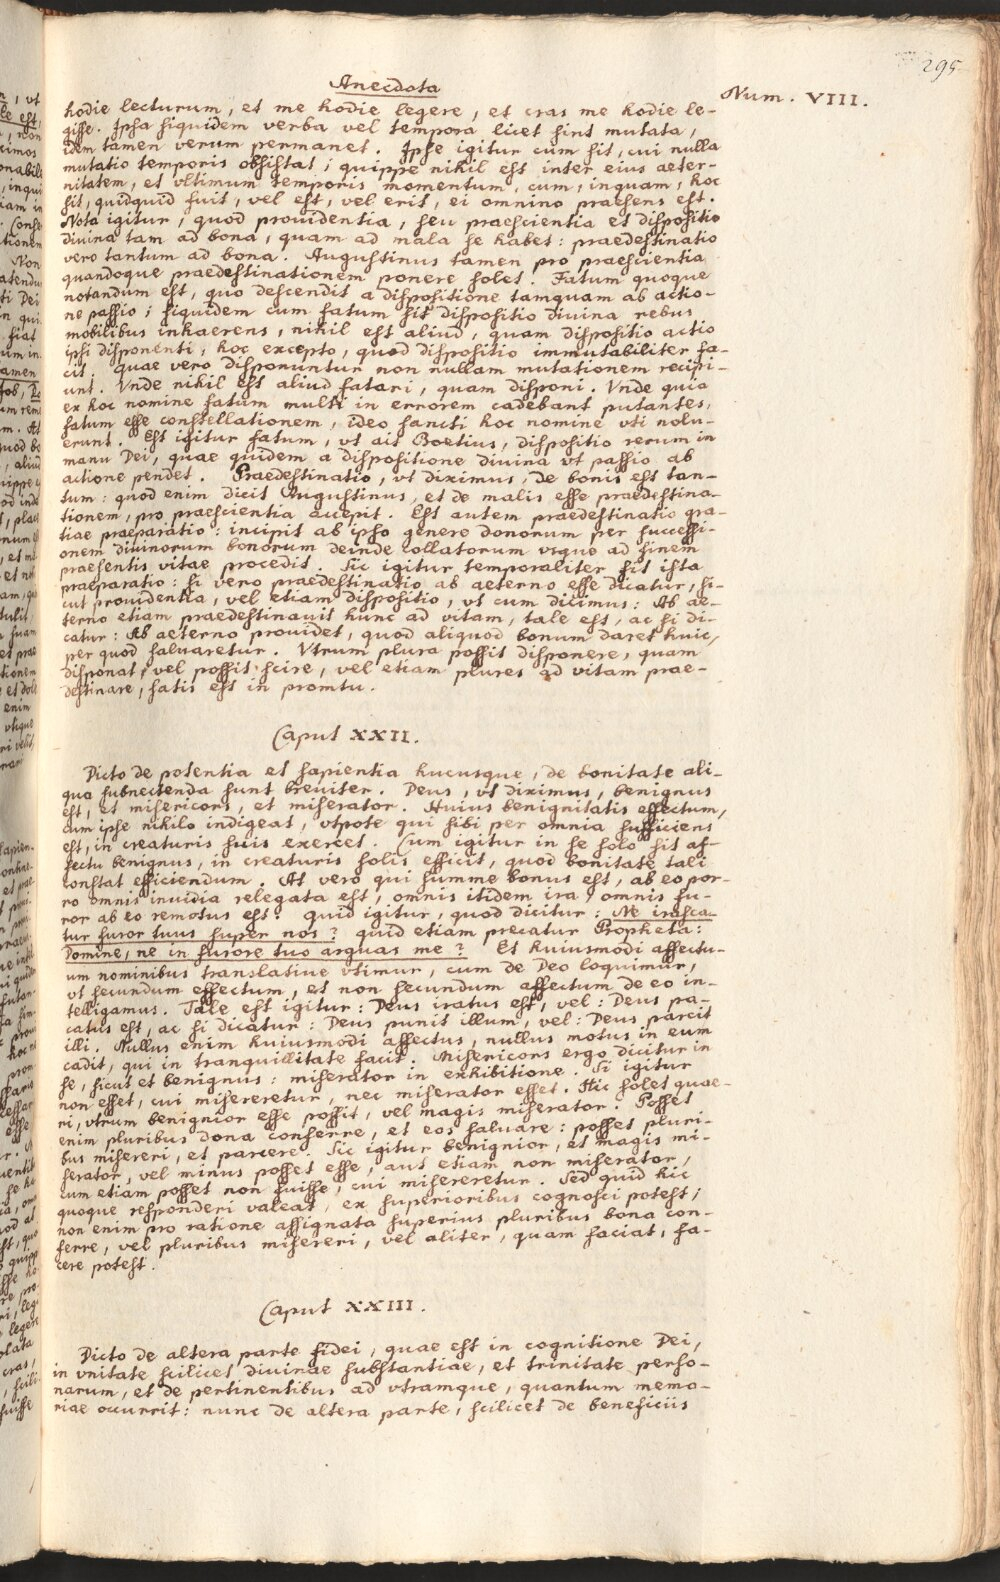 295
Anecdota
Num. VIII.
hodie lecturum, et me hodie legere, et cras me hodie le-
gisse. Ipsa siquidem verba vel tempora licet sint mutata,
idem tamen verum permanet. Ipse igitur cum sit, cui nulla
mutatio temporis obsistat; quippe nihil est inter eius aeter-
nitatem, et vltimum temporis momentum, cum, inquam, hoc
sit, quidquid fuit, vel est, vel erit, ei omnino praesens est.
Nota igitur, quod prouidentia, seu praescientia et dispositio
diuina tam ad bona, quam ad mala se habet: praedestinatio
vero tantum ad bona. Augustinus tamen pro praescientia
quandoque praedestinationem ponere solet. Fatum quoque
notandum est, quo descendit a dispositione tamquam ab actio-
ne passio; siquidem cum fatum sit dispositio diuina rebus
mobilibus inhaerens, nihil est aliud, quam dispositio actio
ipsi disponenti, hoc excepto, quod dispositio immutabiliter fa-
cit. Quae vero disponuntur non nullam mutationem recipi-
unt. Vnde nihil est aliud fatari, quam disponi. Vnde quia
ex hoc nomine fatum multi in errorem cadebant putantes,
fatum esse constellationem, ideo sancti hoc nomine vti nolu-
erunt. Est igitur fatum, vt ait Boetius, dispositio rerum in
manu Dei, quae quidem a dispositione diuina vt passio ab
actione pendet. Praedestinatio, vt diximus, de bonis est tan-
tum: quod enim dicit Augustinus, et de malis esse praedestina-
tionem, pro praescientia accepit. Est autem praedestinatio gra-
tiae praeparatio: incipit ab ipso genere donorum per successi-
onem diuinorum bonorum deinde collatorum vsque ad finem
praesentis vitae procedit. Sic igitur temporaliter fit ista
praeparatio: si vero praedestinatio ab aeterno esse dicatur, si-
cut prouidentia, vel etiam dispositio, vt cum dicimus: Ab ae-
terno etiam praedestinauit hunc ad vitam, tale est, ac si di-
catur: Ab aeterno prouidet, quod aliquod bonum daret huic,
per quod saluaretur. Vtrum plura possit disponere, quam
disponat, vel possit scire, vel etiam plures ad vitam prae-
destinare, satis est in promtu.
Caput XXII.
Dicto de potentia et sapientia hucusque, de bonitate ali-
qua subnectenda sunt breuiter. Deus, vt diximus, benignus
est, et misericors, et miserator. Huius benignitatis effectum,
cum ipse nihilo indigeat, vtpote qui sibi per omnia sufficiens
est, in creaturis suis exercet. Cum igitur in se solo sit af-
fectu benignus, in creaturis solis efficit, quod bonitate tali
constat efficiendum. At vero qui summe bonus est, ab eo por-
ro omnis inuidia relegata est, omnis itidem ira, omnis fu-
ror ab eo remotus est. quid igitur, quod dicitur: Ne irasca-
tur furor tuus super nos? quid etiam precatur Propheta:
Domine, ne in furore tuo arguas me? Et huiusmodi affectu-
um nominibus translatiue vtimur, cum de Deo loquimur,
vt secundum effectum, et non secundum affectum de eo in-
telligamus. Tale est igitur: Deus iratus est, vel: Deus pa-
catus est, ac si dicatur: Deus punit illum, vel: Deus parcit
illi. Nullus enim huiusmodi affectus, nullus motus in eum
cadit, qui in tranquillitate facit. Misericors ergo dicitur in
se, sicut et benignus: miserator in exhibitione. Si igitur
non esset, cui misereretur, nec miserator esset. Hic solet quae-
ri, vtrum benignior esse possit, vel magis miserator. Posset
enim pluribus dona conferre, et eos saluare: posset pluri-
bus misereri, et parcere. Sic igitur benignior, et magis mi-
serator, vel minus posset esse, aut etiam non miserator,
cum etiam posset non fuisse, cui misereretur. Sed quid hic
quoque responderi valeat, ex superioribus cognosci potest;
non enim pro ratione assignata superius pluribus bona con-
ferre, vel pluribus misereri, vel aliter, quam faciat, fa-
cere potest.
Caput XXIII.
Dicto de altera parte fidei, quae est in cognitione Dei,
in vnitate scilicet diuinae substantiae, et trinitate perso-
narum, et de pertinentibus ad vtramque, quantum memo-
riae occurrit: nunc de altera parte, scilicet de beneficiis